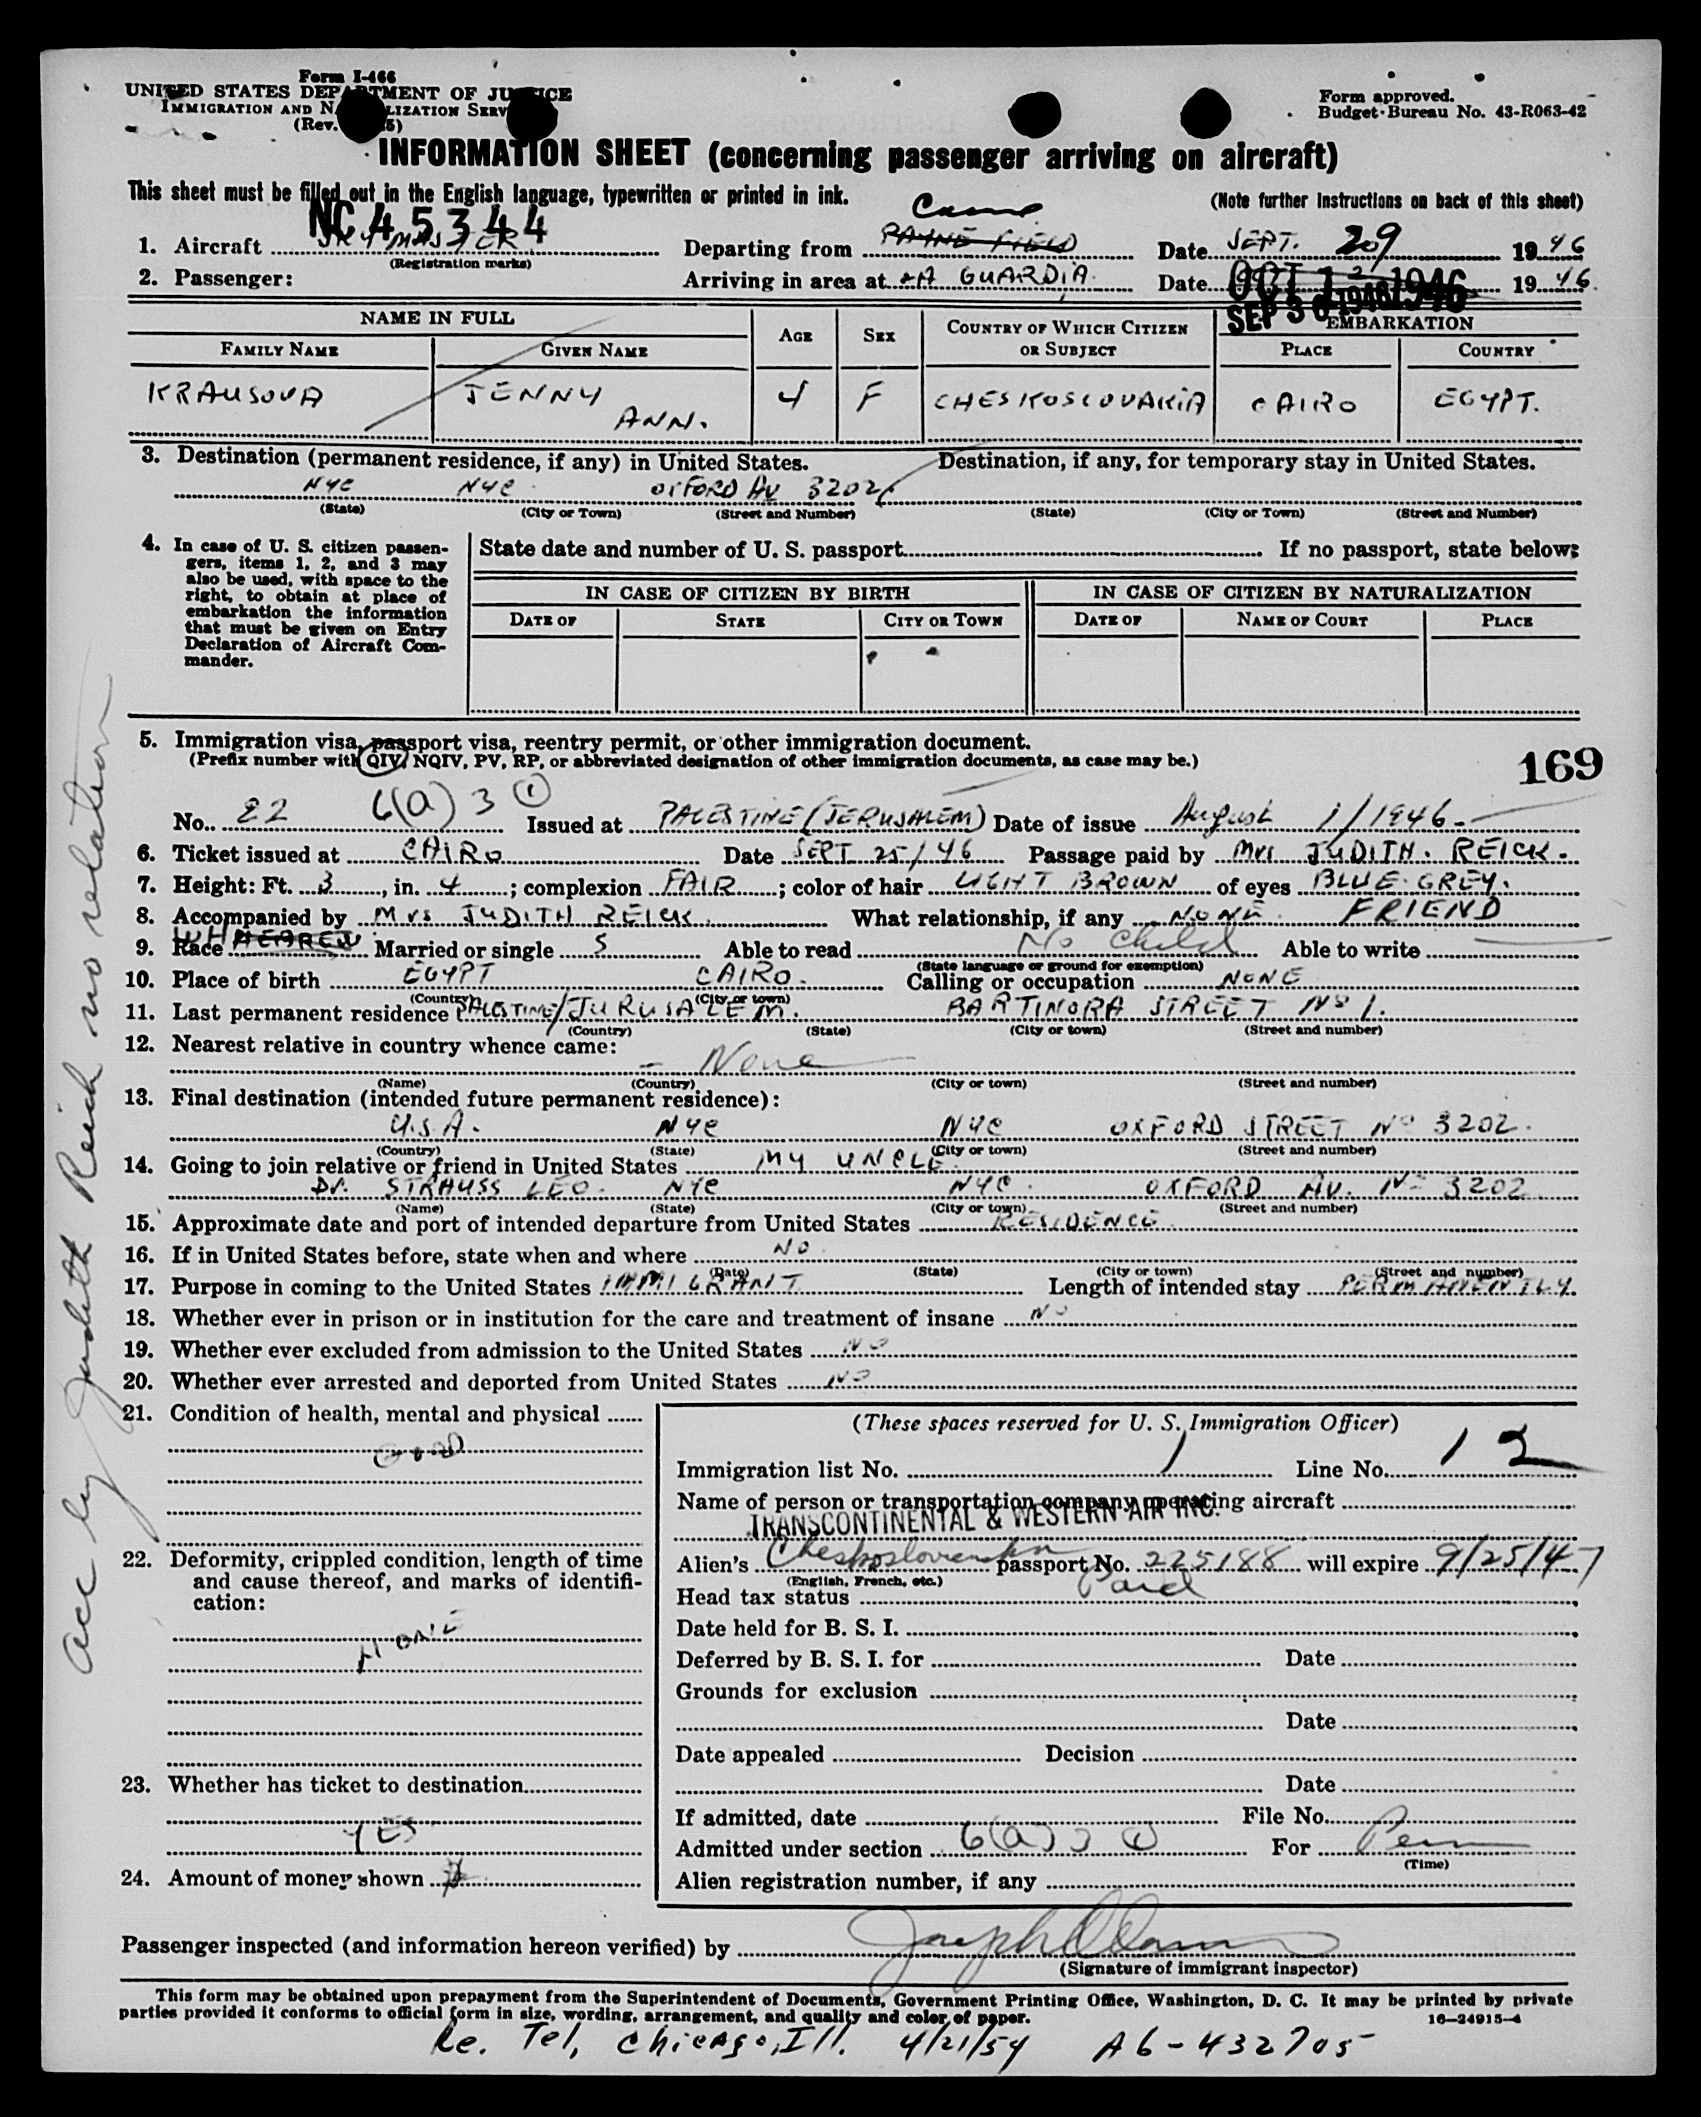 Form I-466
UNITED STATES DEPARTMENT OF JUSTICE
IMMIGRATION AND NATURALIZATION SERV
(Rev. 5)
Form approved.
Budget Bureau No. 43-R063-42
INFORMATION SHEET (concerning passenger arriving on aircraft)
This sheet must be filled out in the English language, typewritten or printed in ink.
(Note further instructions on back of this sheet)
NC 45344
1. Aircraft SKYMASTER Departing from PAYNE FIELD Date SEPT. 29 1946
(Registration marks)
2. Passenger: Arriving in area at LA GUARDIA Date OCT 1 1946 1946
SEP 30 1946
NAME IN FULL AGE SEX COUNTRY OF WHICH CITIZEN OR SUBJECT EMBARKATION
FAMILY NAME GIVEN NAME PLACE COUNTRY
KRAUSOVA JENNY ANN. 4 F CHESKOSLOVAKIA CAIRO EGYPT.
3. Destination (permanent residence, if any) in United States. Destination, if any, for temporary stay in United States.
NYC NYC OXFORD AV 3202
(State) (City or Town) (Street and Number) (State) (City or Town) (Street and Number)
4. In case of U. S. citizen passengers, items 1, 2, and 3 may also be used, with space to the right, to obtain at place of embarkation the information that must be given on Entry Declaration of Aircraft Commander.
State date and number of U. S. passport If no passport, state below:
IN CASE OF CITIZEN BY BIRTH IN CASE OF CITIZEN BY NATURALIZATION
DATE OF STATE CITY OR TOWN DATE OF NAME OF COURT PLACE
5. Immigration visa, passport visa, reentry permit, or other immigration document.
(Prefix number with QIV, NQIV, PV, RP, or abbreviated designation of other immigration documents, as case may be.)
169
No. 22 6(a) 3 (1) Issued at PALESTINE (JERUSALEM) Date of issue August 1/1946
6. Ticket issued at CAIRO Date SEPT 25/46 Passage paid by Mrs JUDITH. REICK.
7. Height: Ft. 3, in. 4; complexion FAIR; color of hair LIGHT BROWN of eyes BLUE GREY.
8. Accompanied by Mrs JUDITH REICK. What relationship, if any NONE FRIEND
9. Race WH HEBREW Married or single S Able to read No child Able to write
(State language or ground for exemption)
10. Place of birth EGYPT CAIRO. Calling or occupation NONE
(Country) (City or town)
11. Last permanent residence PALESTINE/JURUSALEM. BARTINORA STREET No 1.
(Country) (State) (City or town) (Street and number)
12. Nearest relative in country whence came:
None
(Name) (Country) (City or town) (Street and number)
13. Final destination (intended future permanent residence):
U.S.A. NYC NYC OXFORD STREET No 3202.
(Country) (State) (City or town) (Street and number)
14. Going to join relative or friend in United States MY UNCLE.
Dr. STRAUSS LEO. NYC NYC. OXFORD AV. No 3202
(Name) (State) (City or town) (Street and number)
15. Approximate date and port of intended departure from United States RESIDENCE
16. If in United States before, state when and where NO
(Date) (State) (City or town) (Street and number)
17. Purpose in coming to the United States IMMIGRANT Length of intended stay PERMANENTLY.
18. Whether ever in prison or in institution for the care and treatment of insane NO
19. Whether ever excluded from admission to the United States NO
20. Whether ever arrested and deported from United States NO
21. Condition of health, mental and physical
GOOD
22. Deformity, crippled condition, length of time and cause thereof, and marks of identification:
NONE
23. Whether has ticket to destination
YES
24. Amount of money shown
(These spaces reserved for U. S. Immigration Officer)
Immigration list No. 1 Line No. 12
Name of person or transportation company operating aircraft
TRANSCONTINENTAL & WESTERN AIR INC.
Alien's Cheskoslovenskn passport No. 225188 will expire 9/25/47
(English, French, etc.)
Head tax status Paid
Date held for B. S. I.
Deferred by B. S. I. for Date
Grounds for exclusion
Date
Date appealed Decision
Date
If admitted, date File No.
Admitted under section 6(a) 3 (1) For Perm
(Time)
Alien registration number, if any
Passenger inspected (and information hereon verified) by Joseph
(Signature of immigrant inspector)
This form may be obtained upon prepayment from the Superintendent of Documents, Government Printing Office, Washington, D. C. It may be printed by private
parties provided it conforms to official form in size, wording, arrangement, and quality and color of paper.
16—24915-4
Re. Tel, Chicago, Ill. 4/21/54 A6-432705
acc by Judith Reich no relation